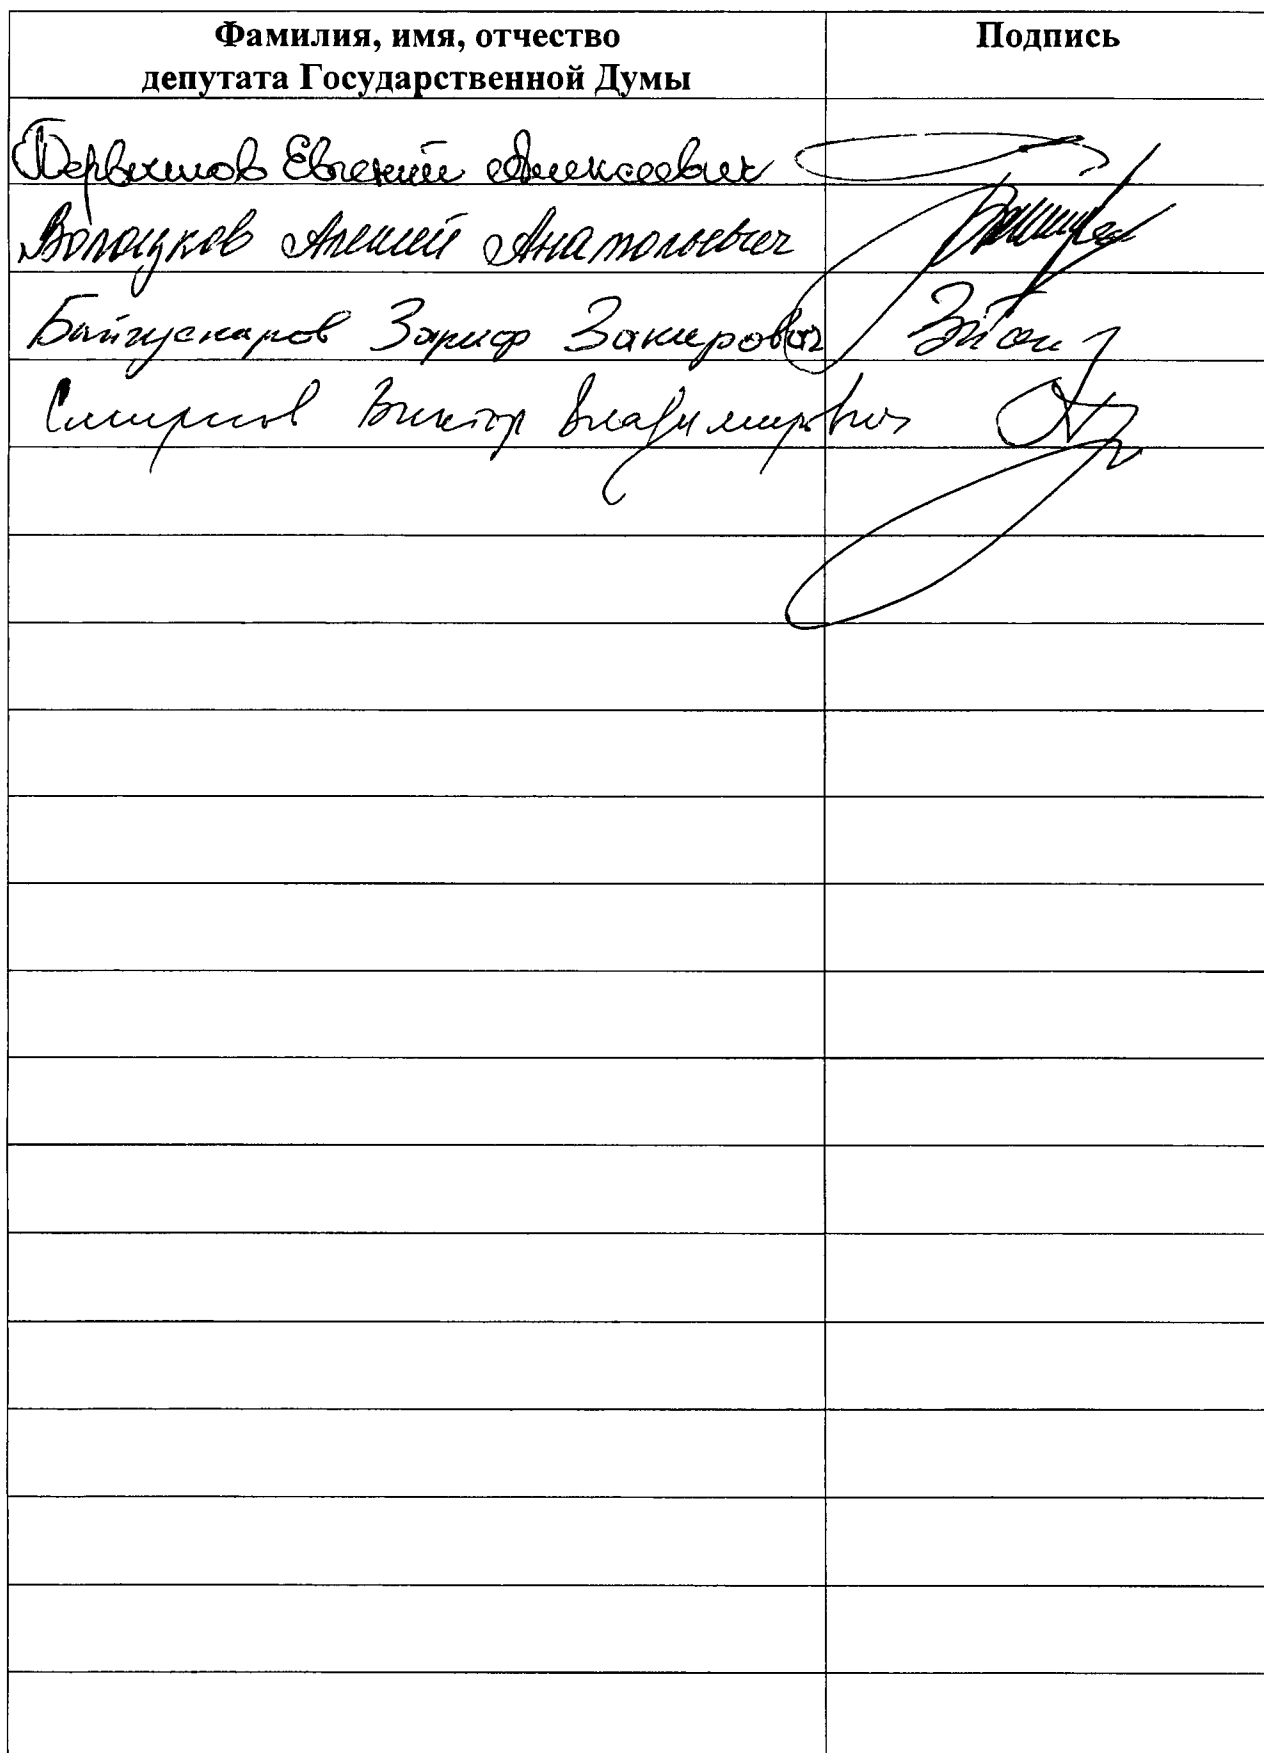 Фамилия, имя, отчество
депутата Государственной Думы
Подпись
Первышов Евгений Алексеевич
Волоцков Алексей Анатольевич
Байгускаров Зариф Закирович
Смирнов Виктор Владимирович